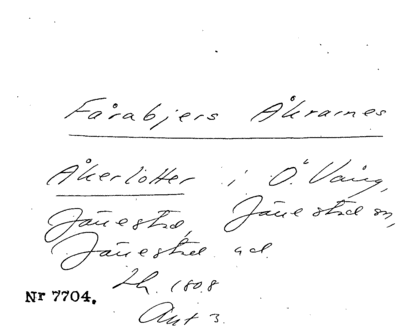 Fårabjers Åkrarnes
Åkerlotter i Ö. Vång,
Järestad, Järestad sn,
Järestad hd.
Lh. 1808
Akt 3.
Nr 7704.